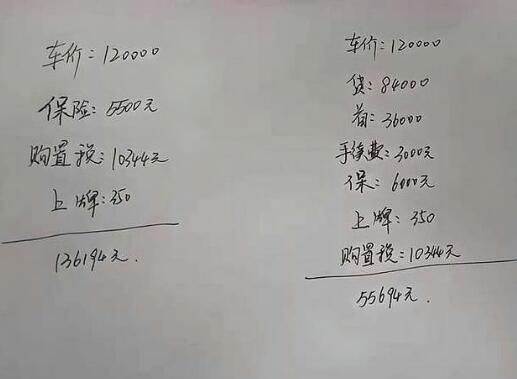 车价：120000
保险：5500元
购置税：10344元
上牌：350
136194元.
车价：120000
贷：84000
首：36000
手续费：3000元
保：6000元
上牌：350
购置税：10344元
55694元.